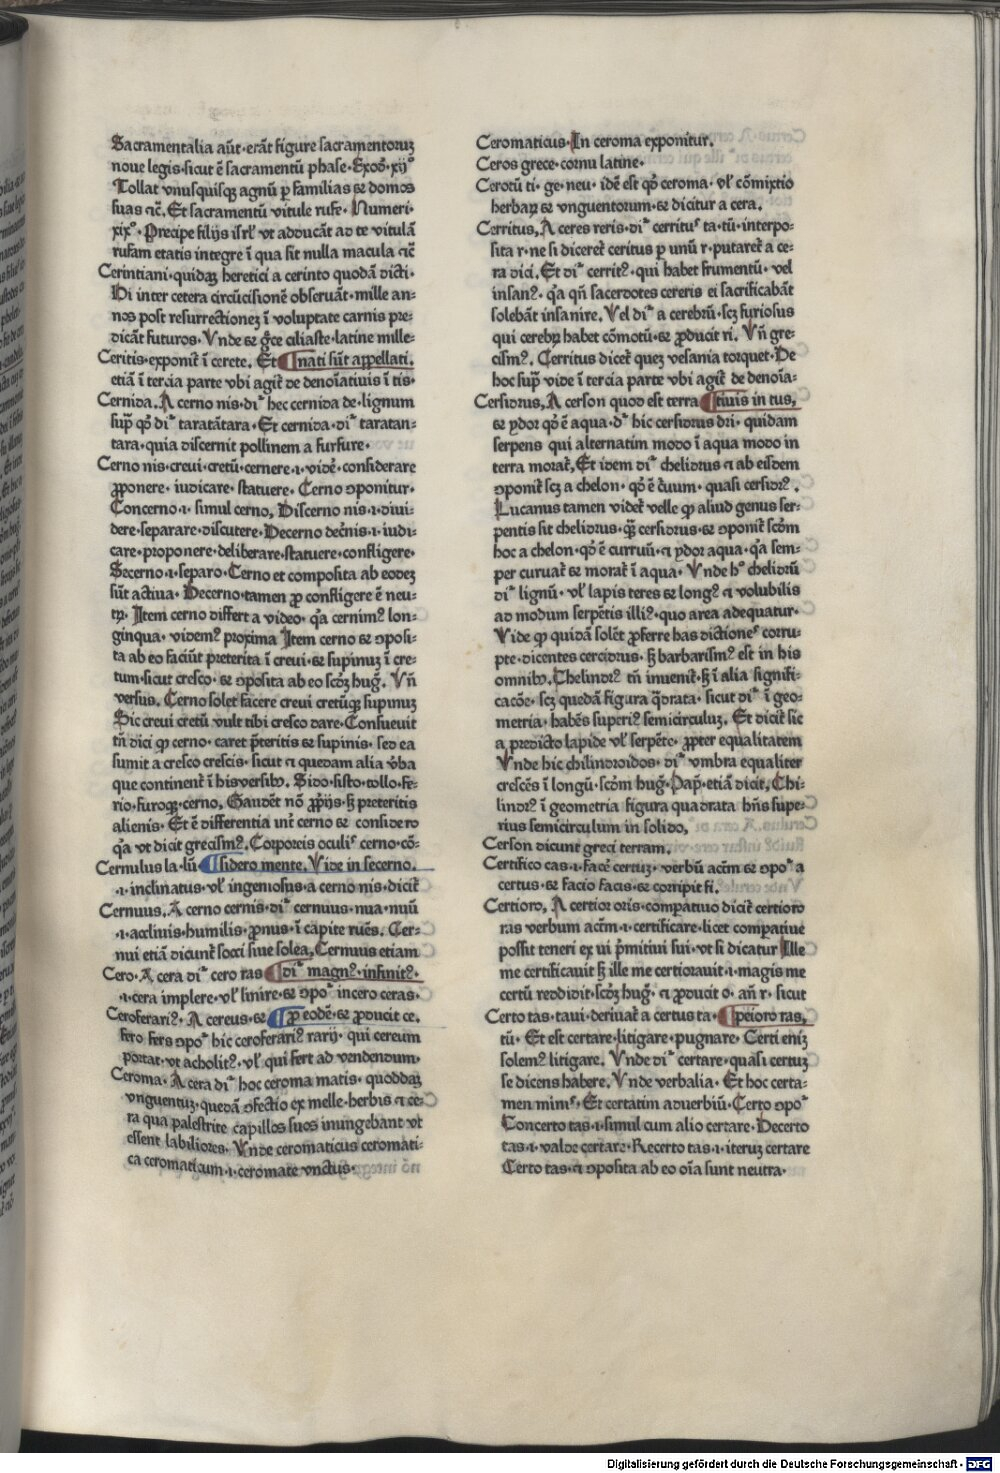 Sacramentalia aūt·erāt figure sacramentoꝝ
noue legis·sicut ē sacramentū phase·Exoð·xijº
Tollat vnusquisqꝫ agnū ꝑ familias ⁊ domos
suas ⁊c̄. Et sacramentū vitule rufe·Numeri·
xixº·Precipe filijs isrl̄ vt adducāt ad te vitulā
rufam etatis integre ī qua sit nulla macula ⁊c̄
Cerintiani·quidaꝫ heretici a cerinto quodā dicti·
Hi inter cetera circūcisionē obseruāt·mille an-
nos post resurrectioneꝫ ī voluptate carnis pre-
dicāt futuros·Vnde ⁊ gͣce ciliaste·latine mille-
Ceritis·exponit̄ ī cerete. Et ¶nati sūt appellati.
etiā ī tercia parte vbi agit̄ de denoīatiuis ī tis·
Cernida. A cerno nis·diͬ hec cernida de·lignum
supͣ qð diͬ taratātara·Et cernida·diͬ taratan-
tara·quia discernit pollinem a furfure·
Cerno nis·creui·cretū·cernere·i·videt̄·considerare
ꝓponere·iudicare·statuere·Cerno ꝯponitur·
Concerno·i·simul cerno, Discerno nis·i·diui-
dere·separare·discutere·Decerno decͥnis·i·iudi-
care·proponere·deliberare·statuere·confligere·
Secerno·i·separo·Cerno et composita ab eodeꝫ
sūt actiua·Decerno·tamen ꝓ confligere ē neu-
tꝝ·Item cerno differt a video·qͣ cernimꝰ lon-
ginqua·videmꝰ proxima Item cerno ⁊ ꝯposi-
ta ab eo faciūt preterita ī creui·⁊ supinuꝫ ī cre-
tum·sicut cresco·⁊ ꝯposita ab eo scðꝫ hug̈. Vn̄
versus. Cerno solet facere creui cretūqꝫ supinuꝫ
Sic creui cretū vult tibi cresco dare·Consueuit
tn̄ dici ꝙ cerno·caret p̄teritis ⁊ supinis·sed ea
sumit a cresco crescis·sicut ⁊ quedam alia ṽba
que continent̄ ī his versibꝫ. Sido·sisto·tollo·fe-
rio·furoqꝫ·cerno, Gaudēt nō ꝓprijs·sꝫ preteritis
alienis·Et ē differentia int̄ cerno ⁊ considero
qͣ vt dicit grecismꝰ. Corporeis oculiˢ cerno·cō-
Cernulus la·lū ¶sidero mente. Vide in secerno.
·i·inclinatus·vl̄ ingeniosus·a cerno nis·dicit̄
Cernuus. A cerno cernis·diͬ cernuus·nua·nuū
·i·accliuis·humilis·ꝓnus·ī capite ruēs. Cer-
nui etiā dicunt̄ socci siue solea, Cermuus etiam
Cero·A cera diͬ cero ras ¶diͬ magnꝰ·infinitꝰ·
·i·cera implere·vl̄ linire·⁊ ꝯpoͬ incero ceras·
Ceroferariꝰ·A cereus·⁊ ¶ꝓ eodē·⁊ ꝓducit ce.
fero fers ꝯpoͬ hic ceroferariꝰ rarij·qui cereum
portat·vt acholitꝰ·vl̄ qui fert ad vendendum·
Ceroma·A cera diͬ hoc ceroma matis·quoddaꝫ
vnguentuꝫ·quedā ꝯfectio ex melle·herbis ⁊ ce-
ra qua palestrite capillos suos inungebant vt
essent labiliores·Vnde ceromaticus ceromati-
ca ceromaticum·i·ceromate vnctus·
Ceromaticus·In ceroma exponitur.
Ceros grece·cornu latine·
Cerotū ti·ge·neu·idē est qð ceroma·vl̄ cōmixtio
herbaꝝ ⁊ vnguentorum·⁊ dicitur a cera.
Cerritus, A ceres reris·diͬ cerrituˢ ta·tū·interpo-
sita r·ne si diceret̄ ceritus ꝑ unū r·putaret̄ a ce-
ra dici. Et diͬ cerritꝰ·qui habet frumentū·vel
insanꝰ·qͣ qn̄ sacerdotes cereris ei sacrificabāt
solebāt insanire. Vel diͬ a cerebrū·scꝫ furiosus
qui cerebꝝ habet cōmotū·⁊ ꝓducit ri. Vn̄ gre-
cismꝰ. Cerritus dicet̄ queꝫ vesania torquet·De
hoc supͣ vide ī tercia parte vbi agit̄ de denoīa-
Cersidrus, A cerson quod est terra ¶tiuis in tus,
⁊ ydor qð ē aqua·dͬ hic cersidrus dri·quidam
serpens qui alternatim modo ī aqua modo in
terra morat̄, Et idem diͬ chelidrus ⁊ ab eisdem
ꝯponit̄ scꝫ a chelon·qð ē c̄uum·quasi cersidrꝰ.
Lucanus tamen videt̄ velle ꝙ aliud genus ser-
pentis sit chelidrus·qͣꝫ cersidrus·⁊ ꝯponit̄ scðm
hoc a chelon·qð ē curruū·⁊ ydor aqua·qͣ sem-
per curuat̄ ⁊ morat̄ ī aqua·Vnde hͦ chelidrū
diͬ lignū·vl̄ lapis teres ⁊ longꝰ ⁊ volubilis
ad modum serpētis illiꝰ·quo area adequatur·
Vide ꝙ quidā solēt ꝓferre has dictioneˢ corru-
pte·dicentes cercidrus·sꝫ barbarismꝰ est in his
omnibꝫ. Chelindrꝰ tn̄ inuenit̄·sꝫ ī alia signifi-
cacōe·scꝫ quedā figura q̈drata·sicut diͬ ī geo-
metria·habēs superiꝰ semicirculuꝫ. Et dicit̄ sic
a predicto lapide vl̄ serpēte·ꝓpter equalitatem
Vnde hic chilindroidos·diͬ vmbra equaliter
crescēs ī longū·scðm hug̈·Papͣ·etiā dicit, Chi-
lindrꝰ ī geometria figura quadrata hn̄s supe-
rius semicirculum in solido,
Cerson dicunt greci terram.
Certifico cas·i·facēᵉ certuꝫ·verbū act̄m ⁊ ꝯpoͬ a
certus·⁊ facio facis·⁊ corripit fi.
Certioro, A certior oris·comparatiuo dicit̄ certioro
ras verbum act̄m·i·certificare·licet comparatiue
possit teneri ex ui p̄mitiui sui·vt si dicatur Ille
me certificauit sꝫ ille me certiorauit·i·magis me
certū reddidit·scðꝫ hug̈·⁊ ꝓducit o·an̄ r·sicut
Certo tas·taui·deriuat̄ a certus ta· ¶peioro ras,
tū·Et est certare·litigare·pugnare·Certi eniꝫ
solemꝰ litigare. Vnde diͬ certare·quasi certuꝫ
se dicens habere. Vnde verbalia·Et hoc certa-
men minˢ·Et certatim aduerbiū·Certo ꝯpoͬ
Concerto tas·i·simul cum alio certare·Decerto
tas·i·valde certare·Recerto tas·i·iteruꝫ certare
Certo tas·⁊ ꝯposita ab eo oīa sunt neutra·
Digitalisierung gefördert durch die Deutsche Forschungsgemeinschaft - DFG